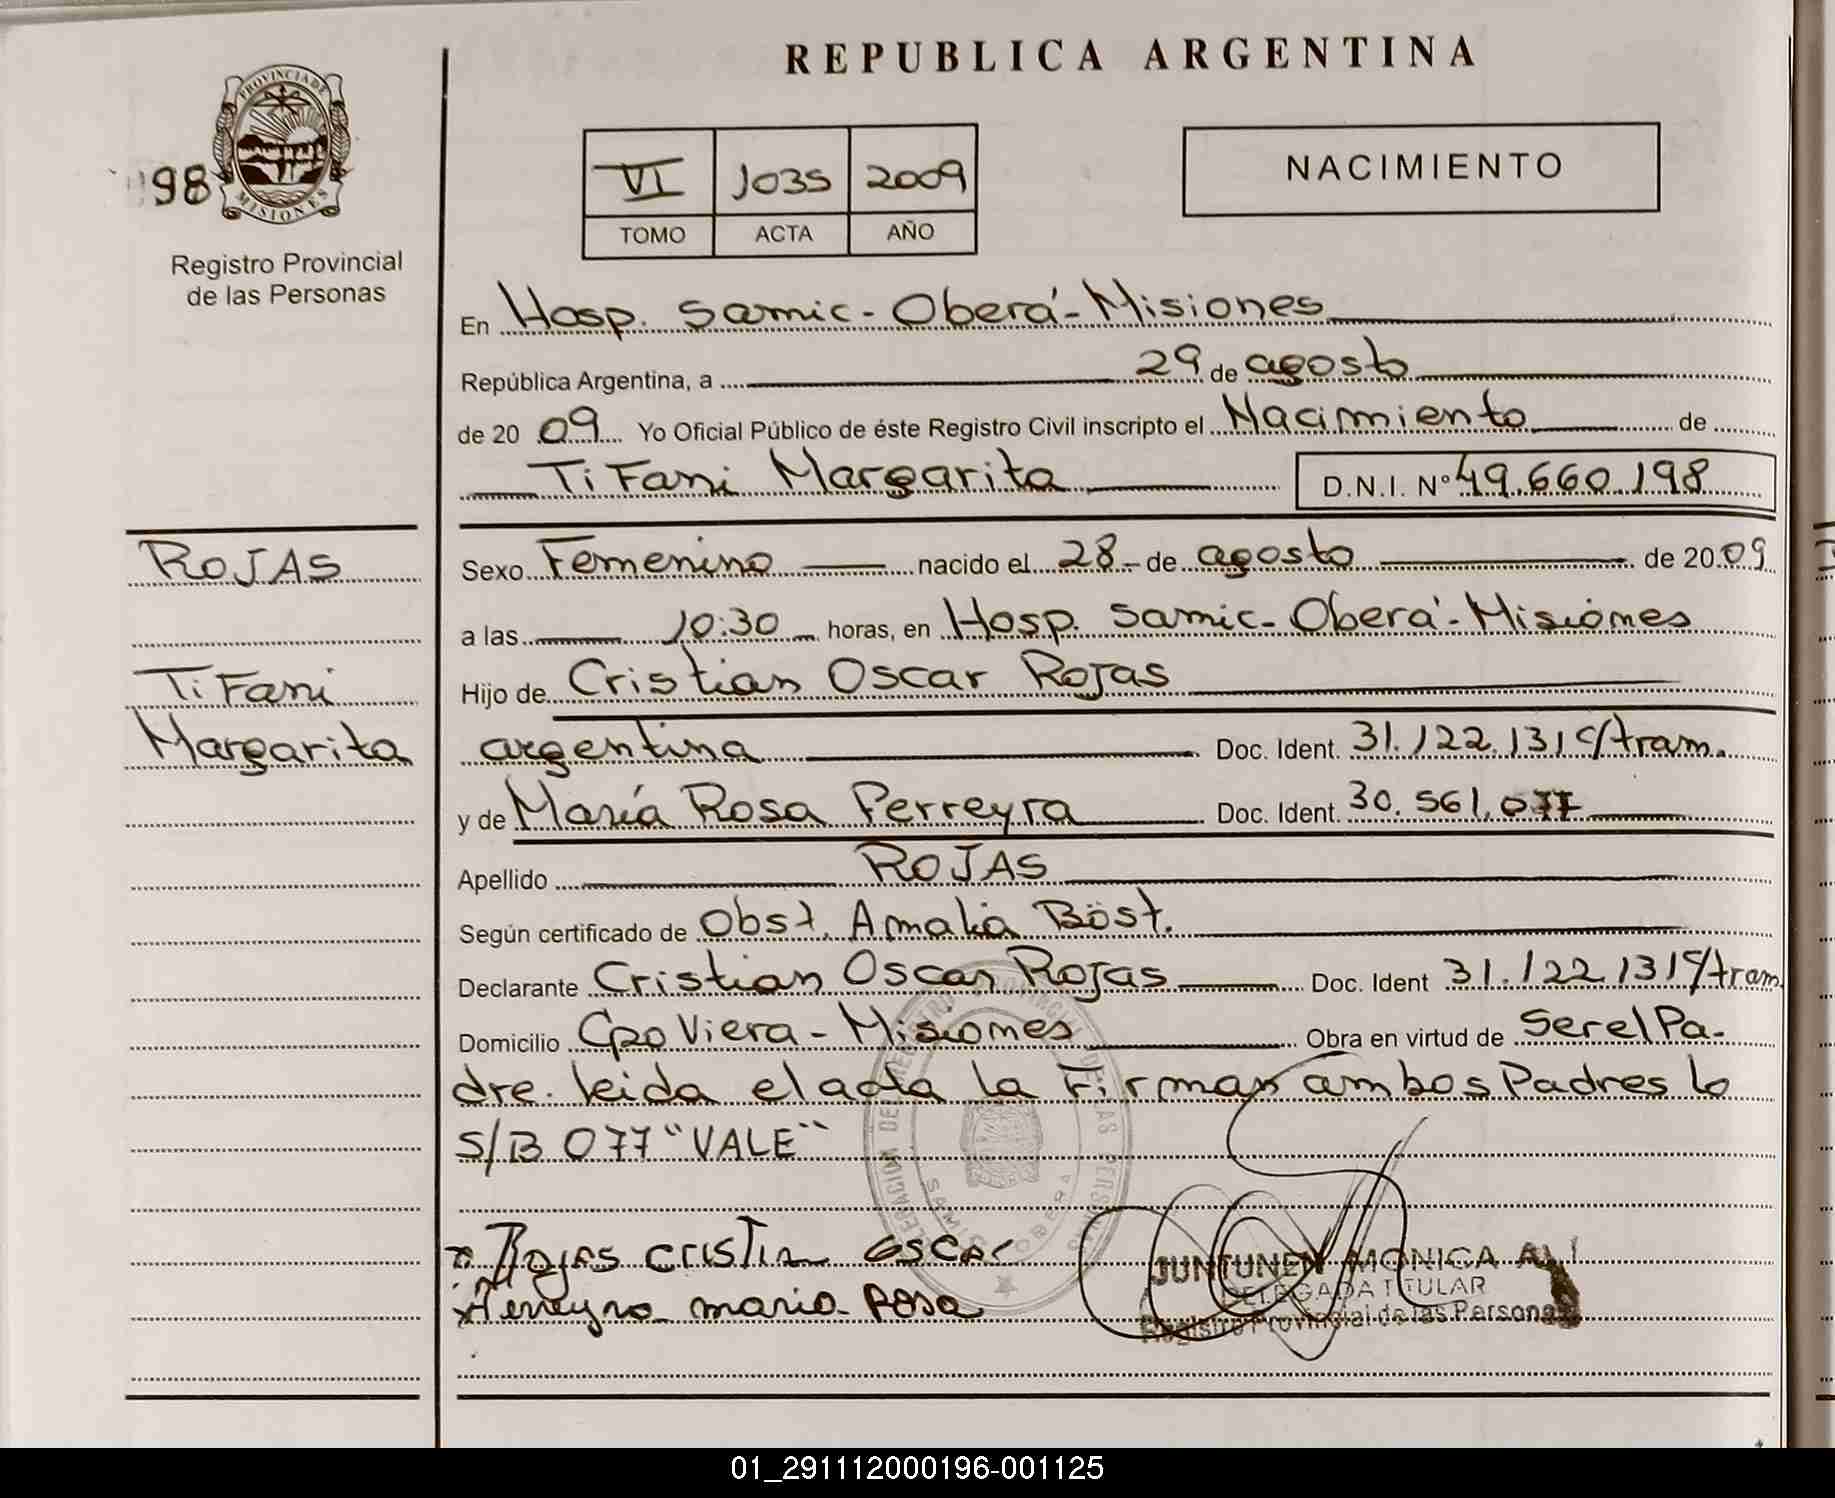 REPUBLICA ARGENTINA
PROVINCIA DE MISIONES
98
Registro Provincial
de las Personas
VI 1035 2009
TOMO ACTA AÑO
NACIMIENTO
En Hosp. Samic - Oberá - Misiones
República Argentina, a 29 de agosto
de 20 09 Yo Oficial Público de éste Registro Civil inscripto el Nacimiento de
TiFani Margarita D.N.I. Nº 49.660.198
ROJAS
TiFani
Margarita
Sexo Femenino nacido el 28 - de agosto de 20 09
a las 10:30 horas, en Hosp. Samic - Oberá - Misiones
Hijo de Cristian Oscar Rojas
argentina Doc. Ident. 31.122.131 c/tram.
y de María Rosa Ferreyra Doc. Ident. 30.561.077
Apellido ROJAS
Según certificado de Obst. Amalia Böst.
Declarante Cristian Oscar Rojas Doc. Ident 31.122.131 c/tram
Domicilio Cpo Viera - Misiones Obra en virtud de Ser el Pa-
dre. leida el acta la Firman ambos Padres lo
S/B 077 "VALE"
Rojas cristian oscar
Ferreyra maria Rosa
JUNTUNEN MONICA
DELEGADA TITULAR
Registro Provincial de las Personas
01_291112000196-001125